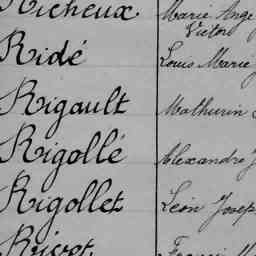 Richeux Marie Ange
Victor
Ridé Louis Marie
Rigault Mathurin
Rigollé Alexandre J
Rigollet Léon Josep